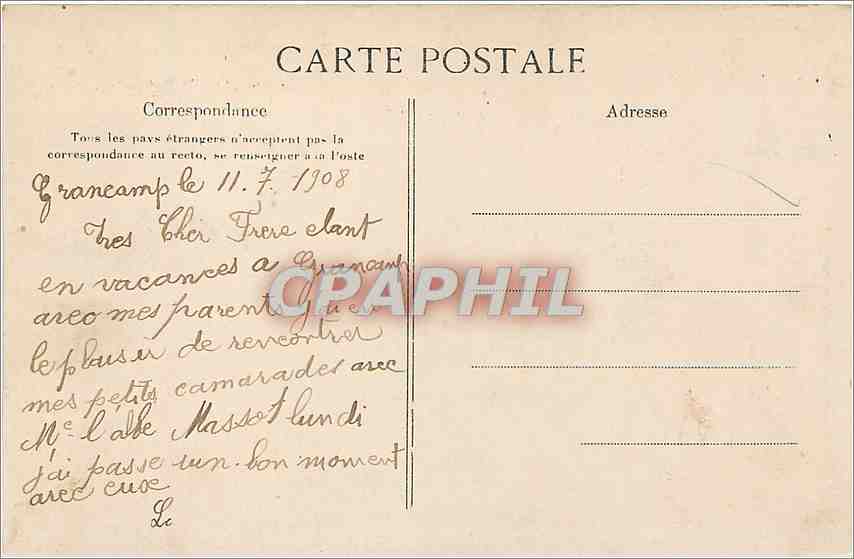 CARTE POSTALE
Correspondance
Adresse
Tous les pays étrangers n'acceptent pas la
correspondance au recto, se renseigner à la Poste
Grancamp le 11.7.1908
Tres Cher Frere etant
en vacances a Grancamp
avec mes parents j'ai eu
le plaisir de rencontrer
mes petits camarades avec
Mr l'abbe Massot lundi
j'ai passe un bon moment
avec eux
CPAPHIL